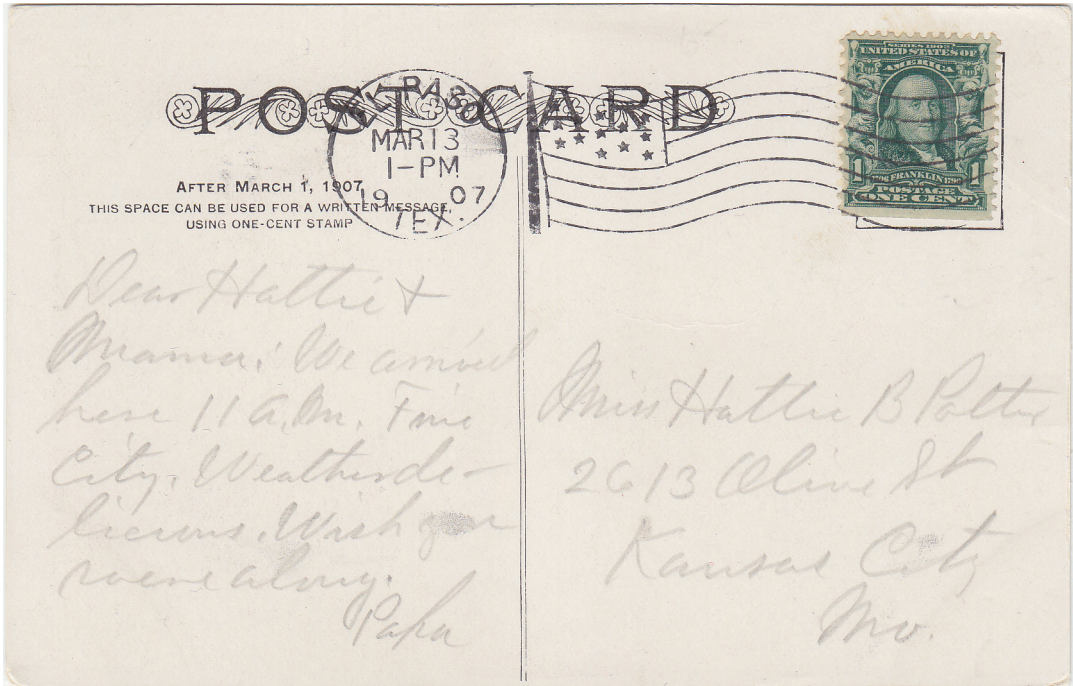 POST CARD
EL PASO
MAR 13
1-PM
19 07
TEX.
SERIES 1902
UNITED STATES OF
AMERICA
1 FRANKLIN 1
POSTAGE
ONE CENT
AFTER MARCH 1, 1907,
THIS SPACE CAN BE USED FOR A WRITTEN MESSAGE,
USING ONE-CENT STAMP
Dear Hattie &
Mamma: We arrived
here 11 A.M. Fine
City. Weather de-
licious. Wish you
were along.
Papa
Miss Hattie B Potter
2613 Olive St
Kansas City
Mo.